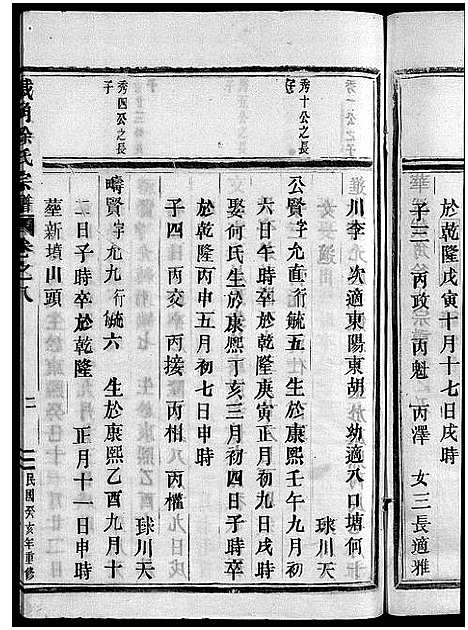 於乾隆戊寅十月十七日戌時
子三 丙政 丙魁 丙澤 女三長適雅
川李 次適東陽東胡 幼適八口塘何
球川天
秀十公之長子
公賢字允直行毓五 生於康熙壬午九月初
六日午時卒於乾隆庚寅正月初九日戌時
娶何氏生於康熙丁亥三月初四日子時卒
於乾隆丙申五月初七日申時
子四 丙交 丙接 丙相 丙權
球川天
秀四公之長子
疇賢字允九行毓六 生於康熙乙酉九月十
二日子時卒於乾隆 正月十一日申時
塟新墳山頭
徐氏宗譜 卷之八
二
民國癸亥年重修